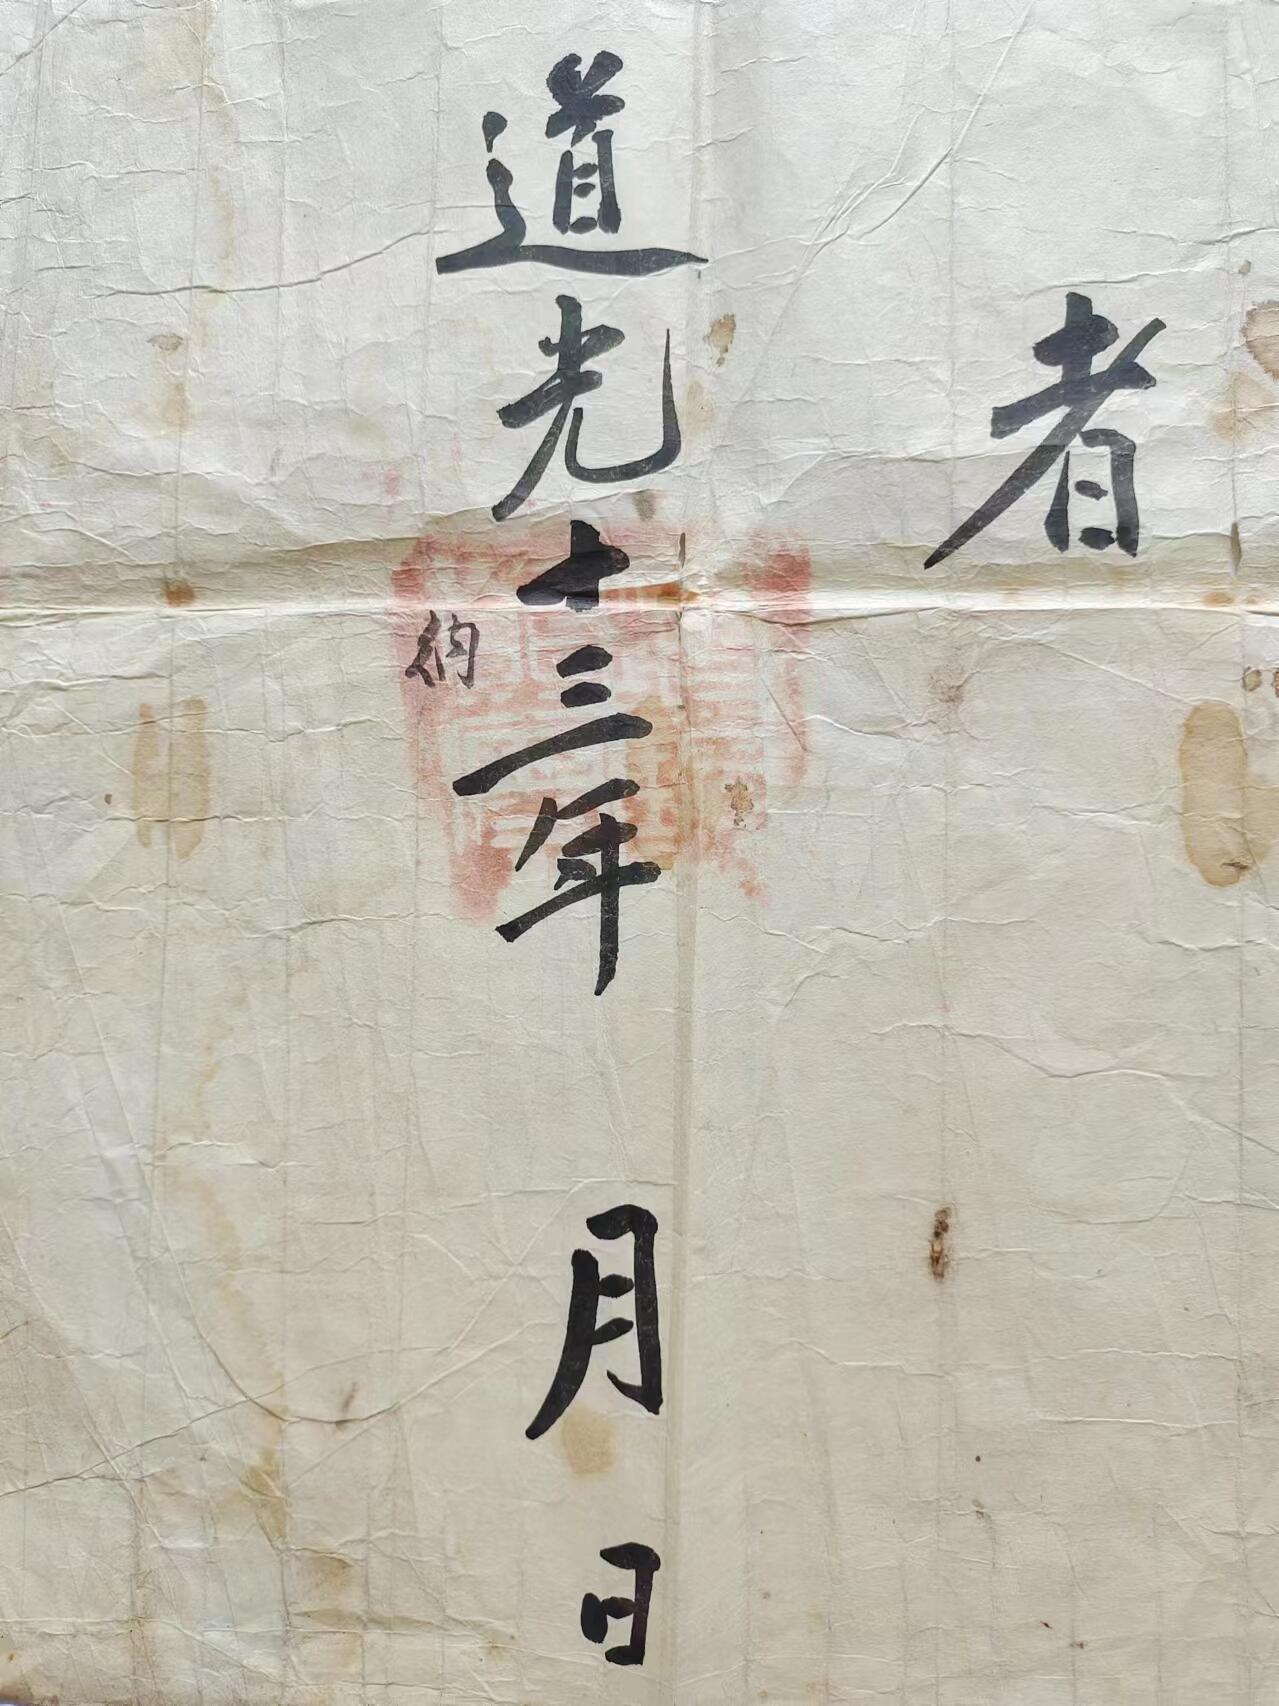 者
道光十三年 月 日